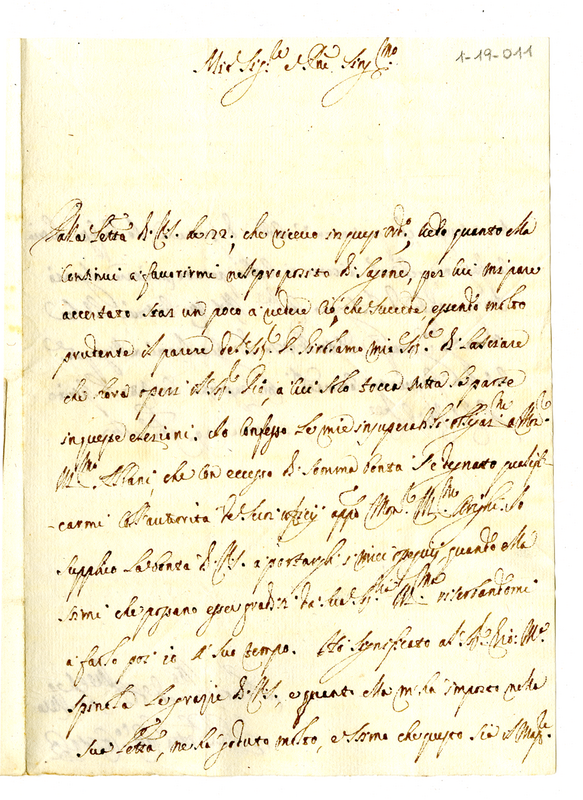 1-19-011
Mio Sig.re e Pne Sing.mo
Dalla Lettra di V.S. de 22, che ricevo in questo ord.o, vedo quanto ella
continui a favorirmi nel proposito di Sazone, per cui mi pare
accertato star un poco a vedere ciò, che succede, essendo molto
prudente il parere del Sig.r D. Girolamo mio Sig.re di lasciare
che hora operi il Sig.r Dio a cui solo tocca tutta la parte
in queste elezioni. Io confesso le mie insuperabili obligaz.ni a Mon.r
Ill.mo Albani, che con eccesso di somma bontà si è degnato qualifi-
carmi coll'autorità de suoi uffizij app.o Mon.r Ill.mo Io
supplico la bontà di V.S. a portargli i miei ossequij, quando ella
stimi che possano esser graditi da Sua Sig.ria Ill.ma riserbandomi
a farlo poi io a suo tempo. Ho significato al Sig.r Gio: M.a
Spinola le grazie di V.S. e quanto ella mi ha imposto nella
sua Lettra, ne ha goduto molto, e stima che questo sia il mag.re